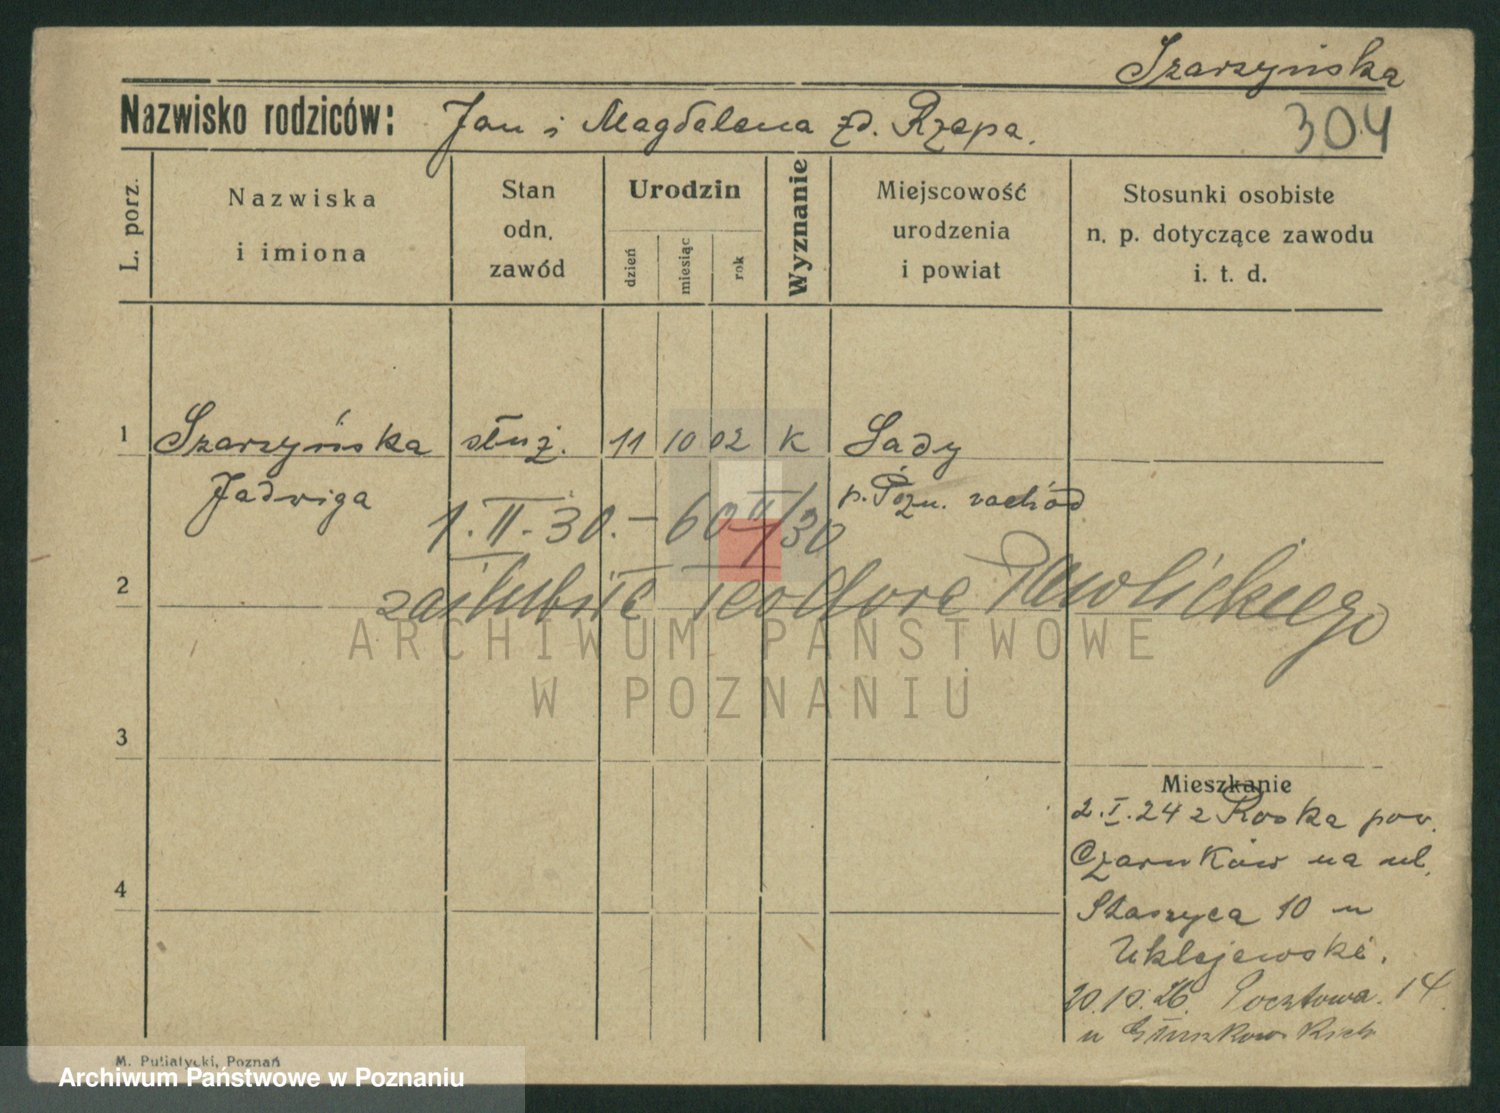 Szarzyńska
Nazwisko rodziców: Jan i Magdalena zd. Rzepa.
304
L. porz.
Nazwiska
i imiona
Stan
odn.
zawód
Urodzin
dzień
miesiąc
rok
Wyznanie
Miejscowość
urodzenia
i powiat
Stosunki osobiste
n. p. dotyczące zawodu
i. t. d.
1 Szarzyńska służ. 11 10 02 K Sady
Jadwiga p. Pozn. zachód
1.II.30. – 60 II/30
2
zaślubiła Teodora Pawlickiego
ARCHIWUM PAŃSTWOWE
W POZNANIU
3
Mieszkanie
2.I.24 z Roska pow.
Czarnków na ul.
4
Staszyca 10 u
Uklejewski.
20.10.26. Pocztowa. 14
u
M. Putiatycki, Poznań
Archiwum Państwowe w Poznaniu